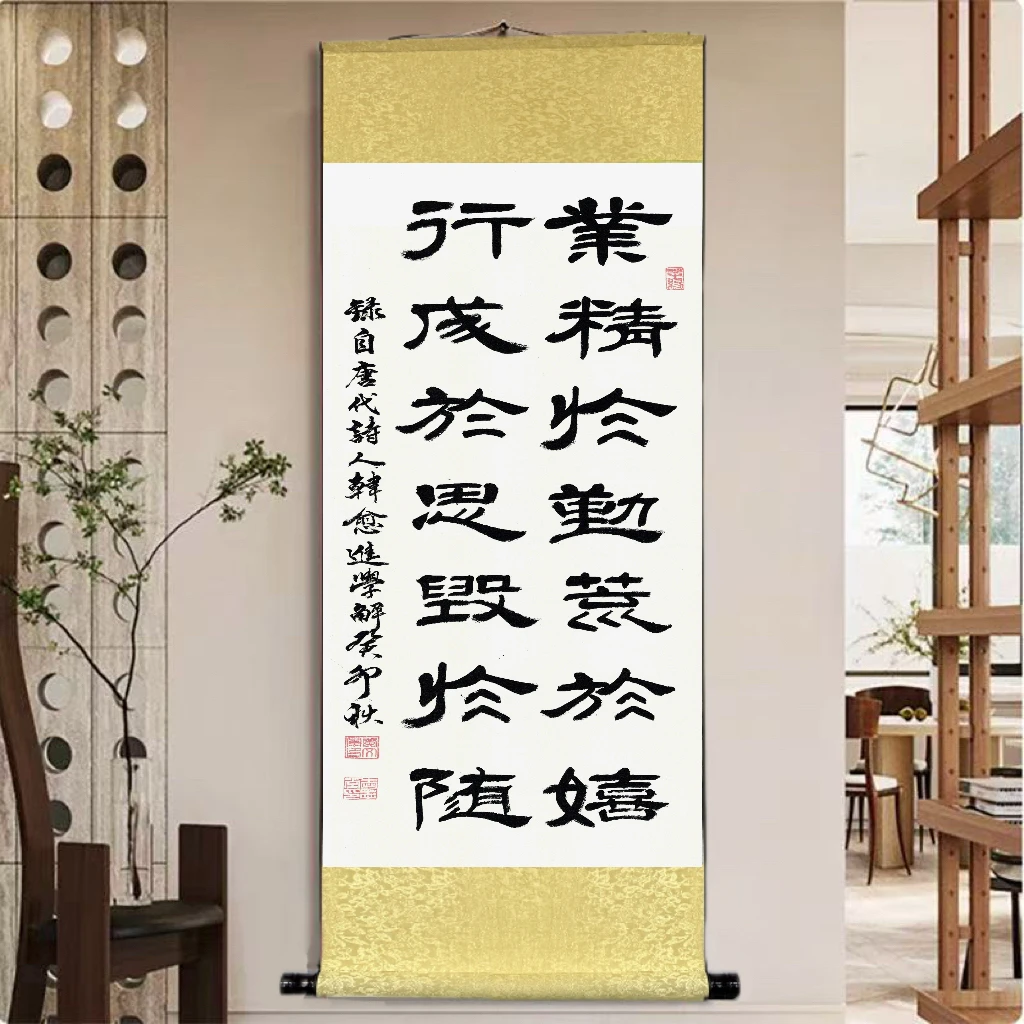 業精於勤荒於嬉
行成於思毀於随
録自唐代詩人韓愈進學解癸卯秋